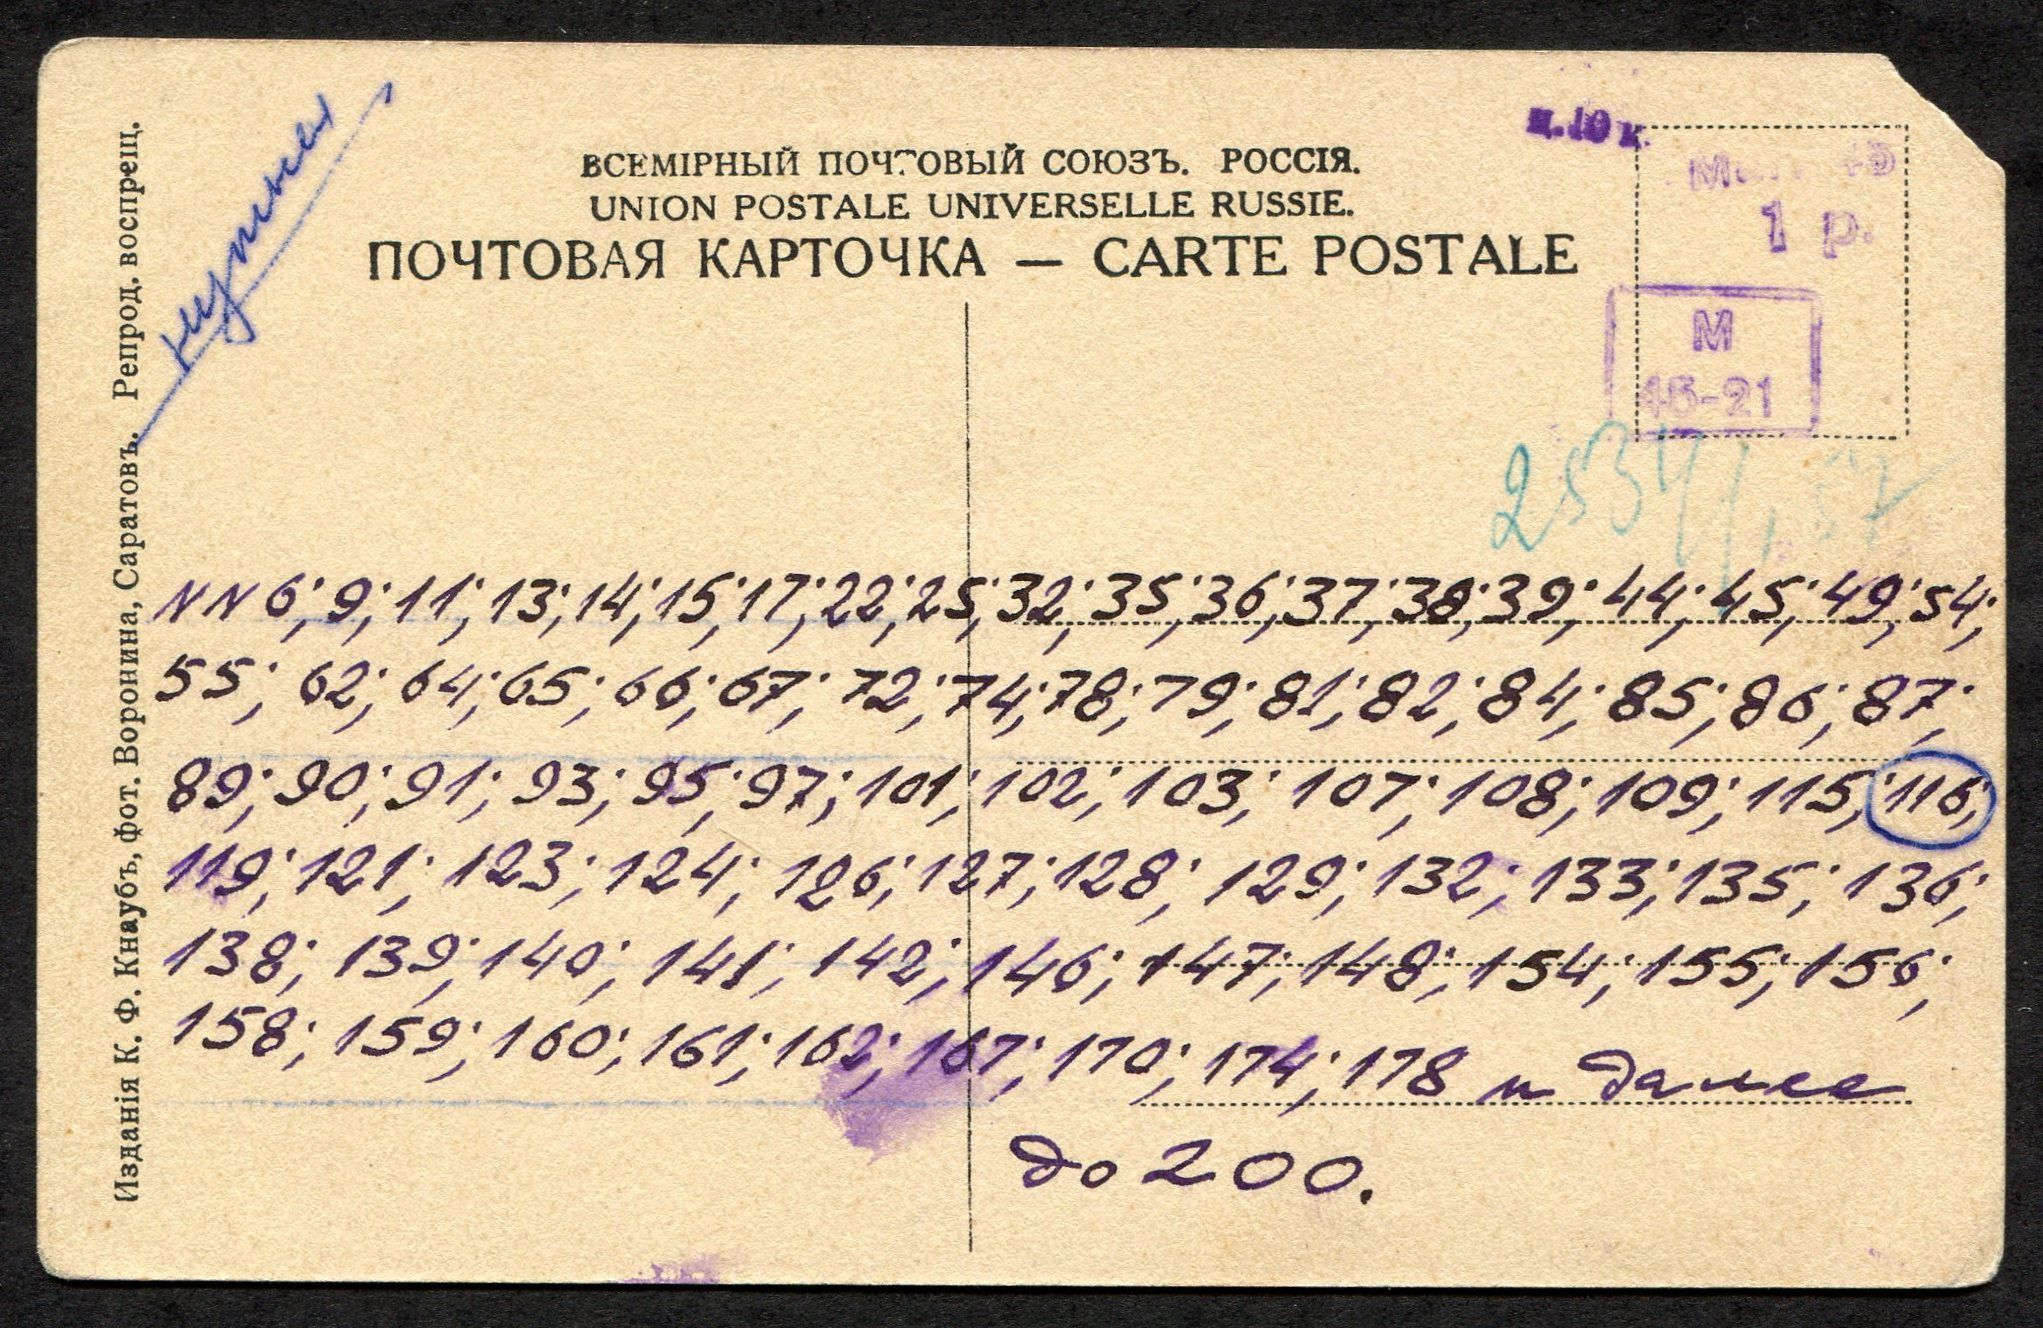 ц. 10 к.
ВСЕМІРНЫЙ ПОЧТОВЫЙ СОЮЗЪ. РОССІЯ.
UNION POSTALE UNIVERSELLE RUSSIE.
ПОЧТОВАЯ КАРТОЧКА — CARTE POSTALE
1 р.
М
15-21
нужны
NN 6; 9; 11; 13; 14; 15; 17; 22; 25; 32; 35; 36; 37; 38; 39; 44; 45; 49; 54;
55; 62; 64; 65; 66; 67; 72; 74; 78; 79; 81; 82; 84; 85; 86; 87;
89; 90; 91; 93; 95; 97; 101; 102; 103; 107; 108; 109; 115; 116;
119; 121; 123; 124; 126; 127; 128; 129; 132; 133; 135; 136;
138; 139; 140; 141; 142; 146; 147; 148; 154; 155; 156;
158; 159; 160; 161; 162; 167; 170; 174; 178 и далее
до 200.
Изданія К. Ф. Кнаубъ, фот. Воронина, Саратовъ. Репрод. воспрещ.